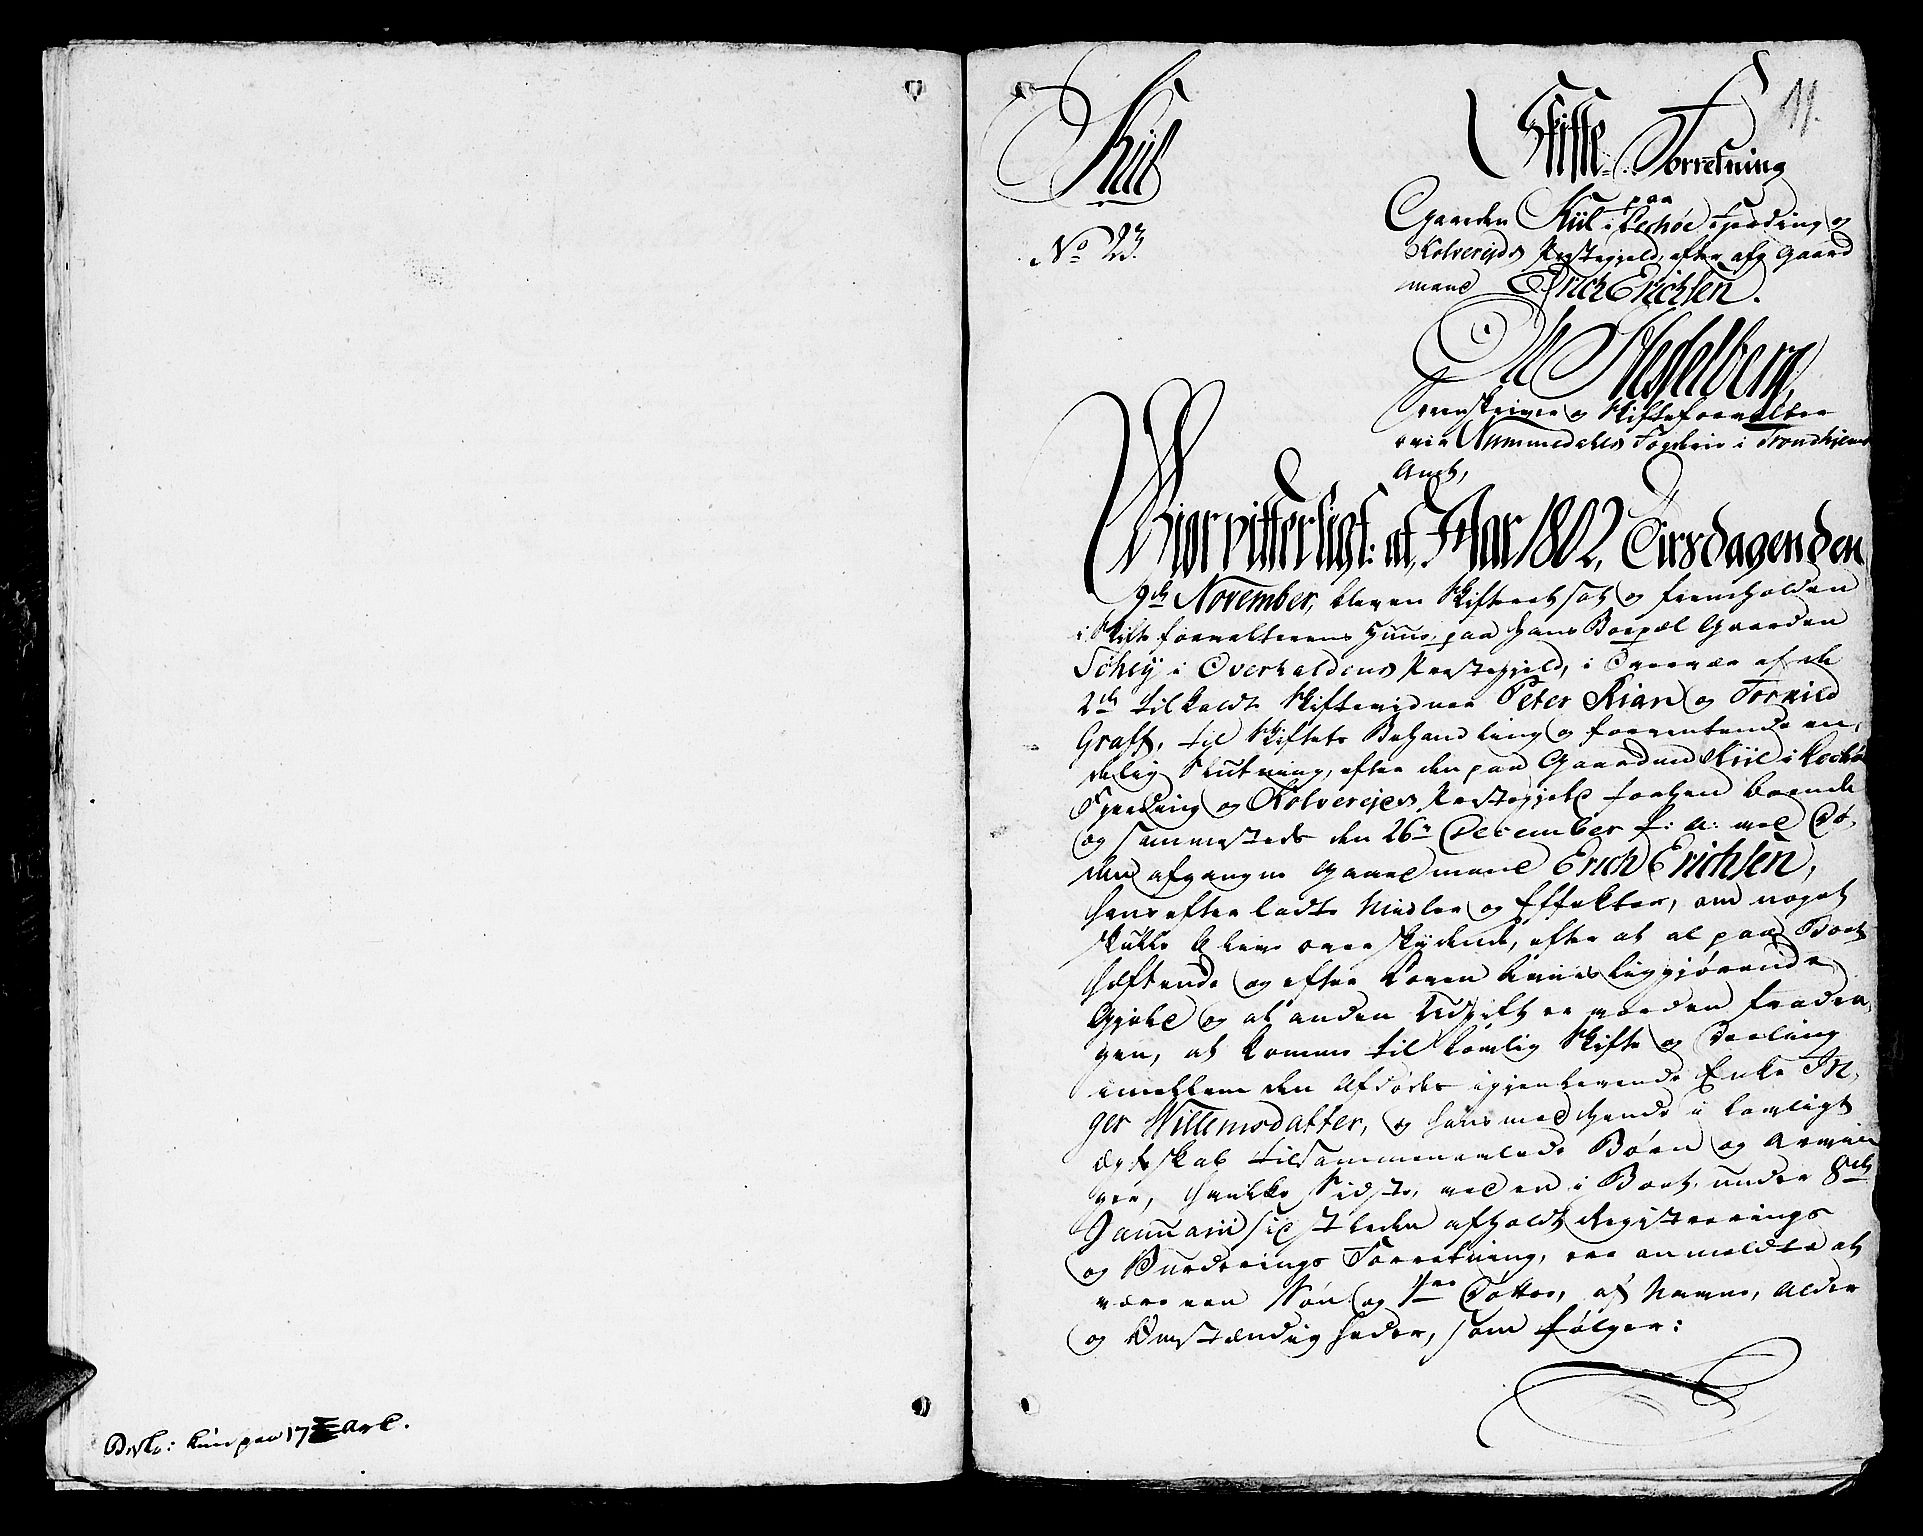 Beslr: kun paa 17 Ark.
Kiil
No 23.
11.
Skifte-Forretning
paa
Gaarden Kiil i Leehøe Fierding og
Kolvereids Præstegield, efter afg Gaard
mand Erich Erichsen.
Hesselberg,
Sorenskriver og Skifteforvalter
over Nummedahls Fogderie i Trondhiems
Amt,
Giør vitterligt: at, Aar 1802, Tirsdagen den
9de November, blev en Skifteret sat og fremholden
i Skifteforvalterens Huus, paa hans Boepæl Gaarden
Schey i Overhaldens Præstegield, i Overvær af de
2de tilkaldte Skiftevidner Peter Rian og Tornild
Graff, til Skiftets Behandling og forventende en,
delig Slutning, efter den paa Gaarden Kiil i Leehø
Fierding og Kolverejds Præstegield forhen boende
og sammesteds den 26de December f: A: ved Dø,
den afgangne Gaardmand Erich Erichsen,
hans efterladte Midler og Effekter, om noget
skulle blive overskydende, efter at al paa Boet
hæftende og efter Loven beviisliggjørende
Gjæld og al anden Udgift er vorden fradra,
gen, at komme til lovlig Skifte og Deeling
imellem den Afdødes igjenlevende Enke In,
ger Willemsdatter, og hans med hende i lovligt
Ægteskab tilsammenavlede Børn og Arvin
ger, hvilke Sidste, ved en i Boet under 8de
Januarii sidstleden afholdt Registerings
og Vurderings Forretning, ere anmeldte at
være een Søn og 4re Døttre, af Navne, Alder
og Omstændigheder, som følger: